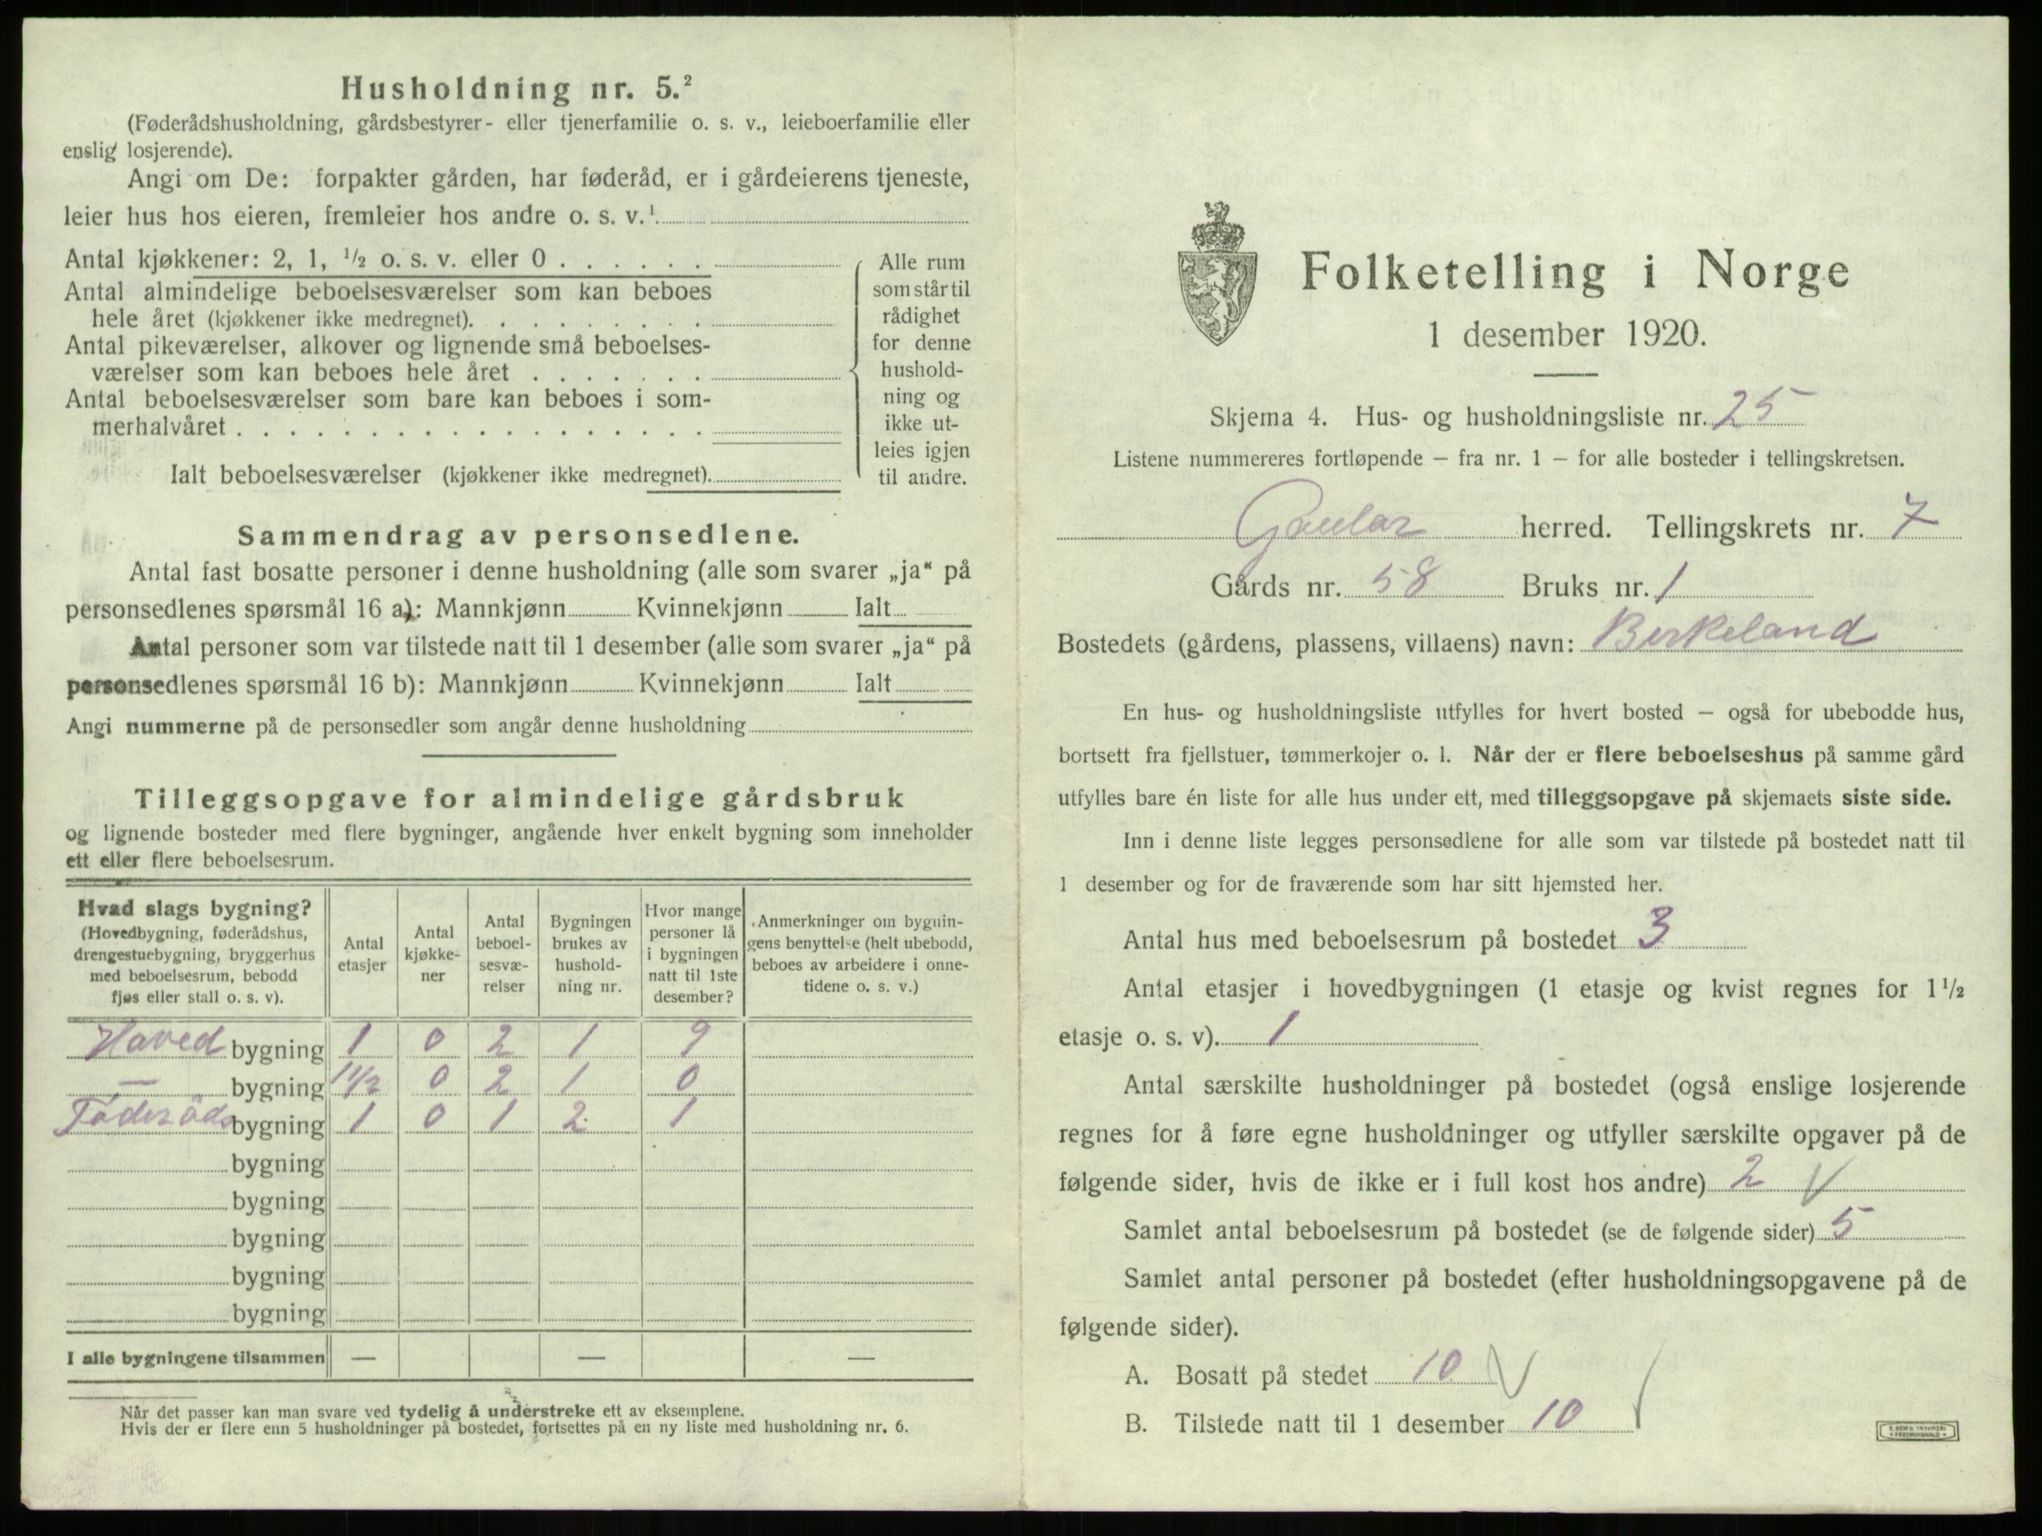 Husholdning nr. 5.²
(Føderådshusholdning, gårdsbestyrer- eller tjenerfamilie o. s. v., leieboerfamilie eller
enslig losjerende).
Angi om De: forpakter gården, har føderåd, er i gårdeierens tjeneste,
leier hus hos eieren, fremleier hos andre o. s. v.¹
Antal kjøkkener: 2, 1, ½ o. s. v. eller 0 . . . . . .
Antal almindelige beboelsesværelser som kan beboes
hele året (kjøkkener ikke medregnet). . . . . . . . .
Antal pikeværelser, alkover og lignende små beboelses-
værelser som kan beboes hele året . . . . . . .
Antal beboelsesværelser som bare kan beboes i som-
merhalvåret . . . . . . . . . . . . . . . . . .
Ialt beboelsesværelser (kjøkkener ikke medregnet).
Alle rum
som står til
rådighet
for denne
hushold-
ning og
ikke ut-
leies igjen
til andre.
Sammendrag av personsedlene.
Antal fast bosatte personer i denne husholdning (alle som svarer „ja“ på
personsedlenes spørsmål 16 a): Mannkjønn Kvinnekjønn Ialt
Antal personer som var tilstede natt til 1 desember (alle som svarer „ja“ på
personsedlenes spørsmål 16 b): Mannkjønn Kvinnekjønn Ialt
Angi nummerne på de personsedler som angår denne husholdning
Tilleggsopgave for almindelige gårdsbruk
og lignende bosteder med flere bygninger, angående hver enkelt bygning som inneholder
ett eller flere beboelsesrum.
Hvad slags bygning?
(Hovedbygning, føderådshus,
drengestuebygning, bryggerhus
med beboelsesrum, bebodd
fjøs eller stall o. s. v).
Antal
etasjer
Antal
kjøkke-
ner
Antal
beboel-
sesvæ-
relser
Bygningen
brukes av
hushold-
ning nr.
Hvor mange
personer lå
i bygningen
natt til 1ste
desember?
Anmerkninger om bygnin-
gens benyttelse (helt ubebodd,
beboes av arbeidere i onne-
tidene o. s. v.)
Hoved bygning 1 0 2 1 9
— bygning 1½ 0 2 1 0
Føderåds bygning 1 0 1 2 1
bygning
bygning
bygning
bygning
bygning
I alle bygningene tilsammen — — —
Når det passer kan man svare ved tydelig å understreke ett av eksemplene.
Hvis der er flere enn 5 husholdninger på bostedet, fortsettes på en ny liste med husholdning nr. 6.
Folketelling i Norge
1 desember 1920.
Skjema 4. Hus- og husholdningsliste nr. 25
Listene nummereres fortløpende – fra nr. 1 – for alle bosteder i tellingskretsen.
Gaular herred. Tellingskrets nr. 7
Gårds nr. 58 Bruks nr. 1
Bostedets (gårdens, plassens, villaens) navn: Birkeland
En hus- og husholdningsliste utfylles for hvert bosted – også for ubebodde hus,
bortsett fra fjellstuer, tømmerkojer o. l. Når der er flere beboelseshus på samme gård
utfylles bare én liste for alle hus under ett, med tilleggsopgave på skjemaets siste side.
Inn i denne liste legges personsedlene for alle som var tilstede på bostedet natt til
1 desember og for de fraværende som har sitt hjemsted her.
Antal hus med beboelsesrum på bostedet 3
Antal etasjer i hovedbygningen (1 etasje og kvist regnes for 1½
etasje o. s. v). 1
Antal særskilte husholdninger på bostedet (også enslige losjerende
regnes for å føre egne husholdninger og utfyller særskilte opgaver på de
følgende sider, hvis de ikke er i full kost hos andre) 2 √
Samlet antal beboelsesrum på bostedet (se de følgende sider) 5
Samlet antal personer på bostedet (efter husholdningsopgavene på de
følgende sider).
A. Bosatt på stedet 10 √
B. Tilstede natt til 1 desember 10 √